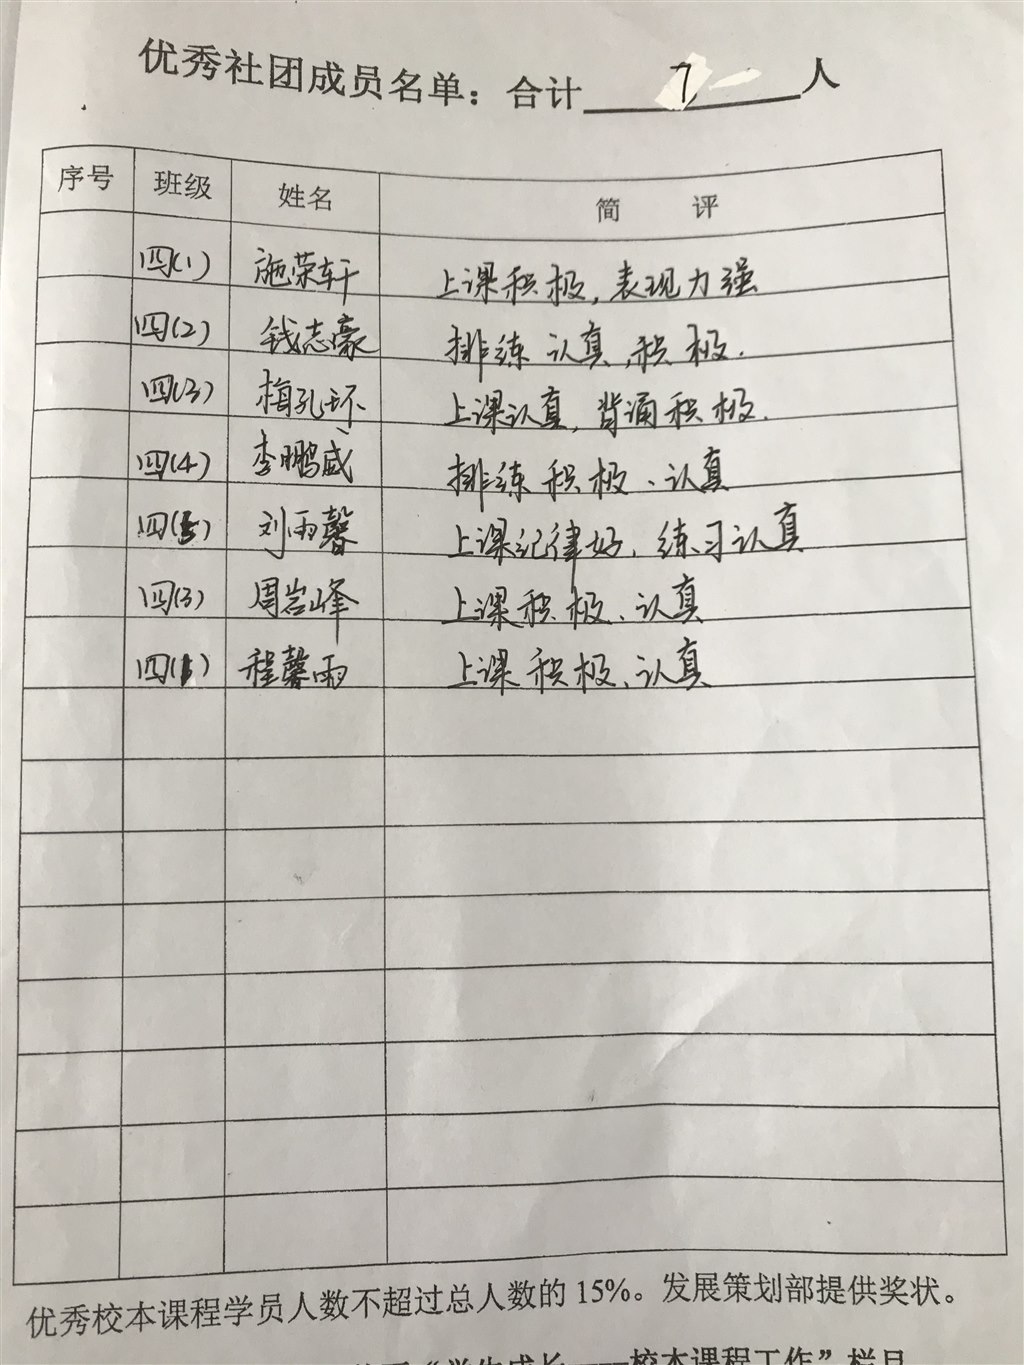 优秀社团成员名单：合计 7 人
序号 班级 姓名 简 评
四(1) 施荣轩 上课积极，表现力强
四(2) 钱志豪 排练认真，积极.
四(3) 梅孔环 上课认真，背诵积极.
四(4) 李鹏威 排练积极、认真
四(5) 刘雨馨 上课纪律好，练习认真
四(3) 周岩峰 上课积极、认真
四() 程馨雨 上课积极、认真
优秀校本课程学员人数不超过总人数的 15%。发展策划部提供奖状。
“学生成长——校本课程工作”栏目